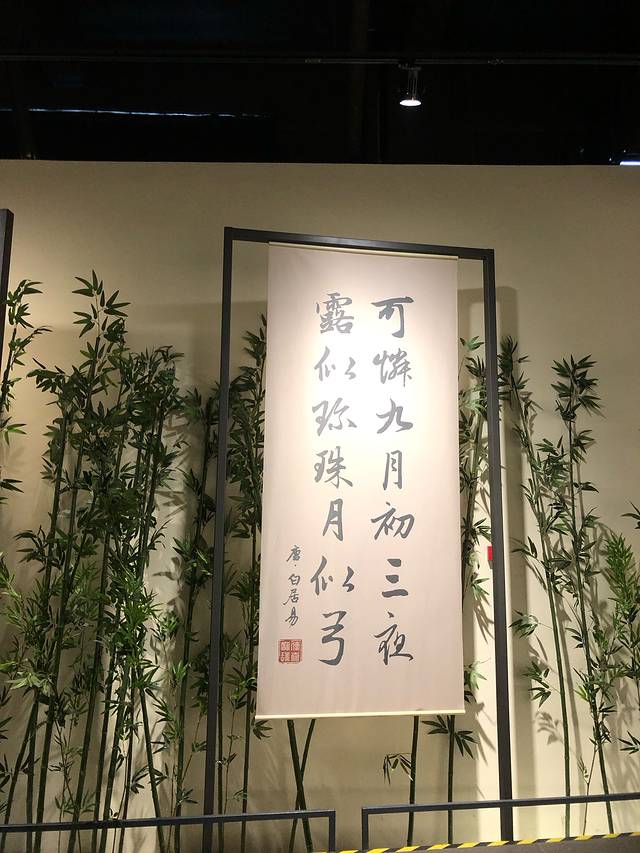 可憐九月初三夜
露似珍珠月似弓
唐·白居易